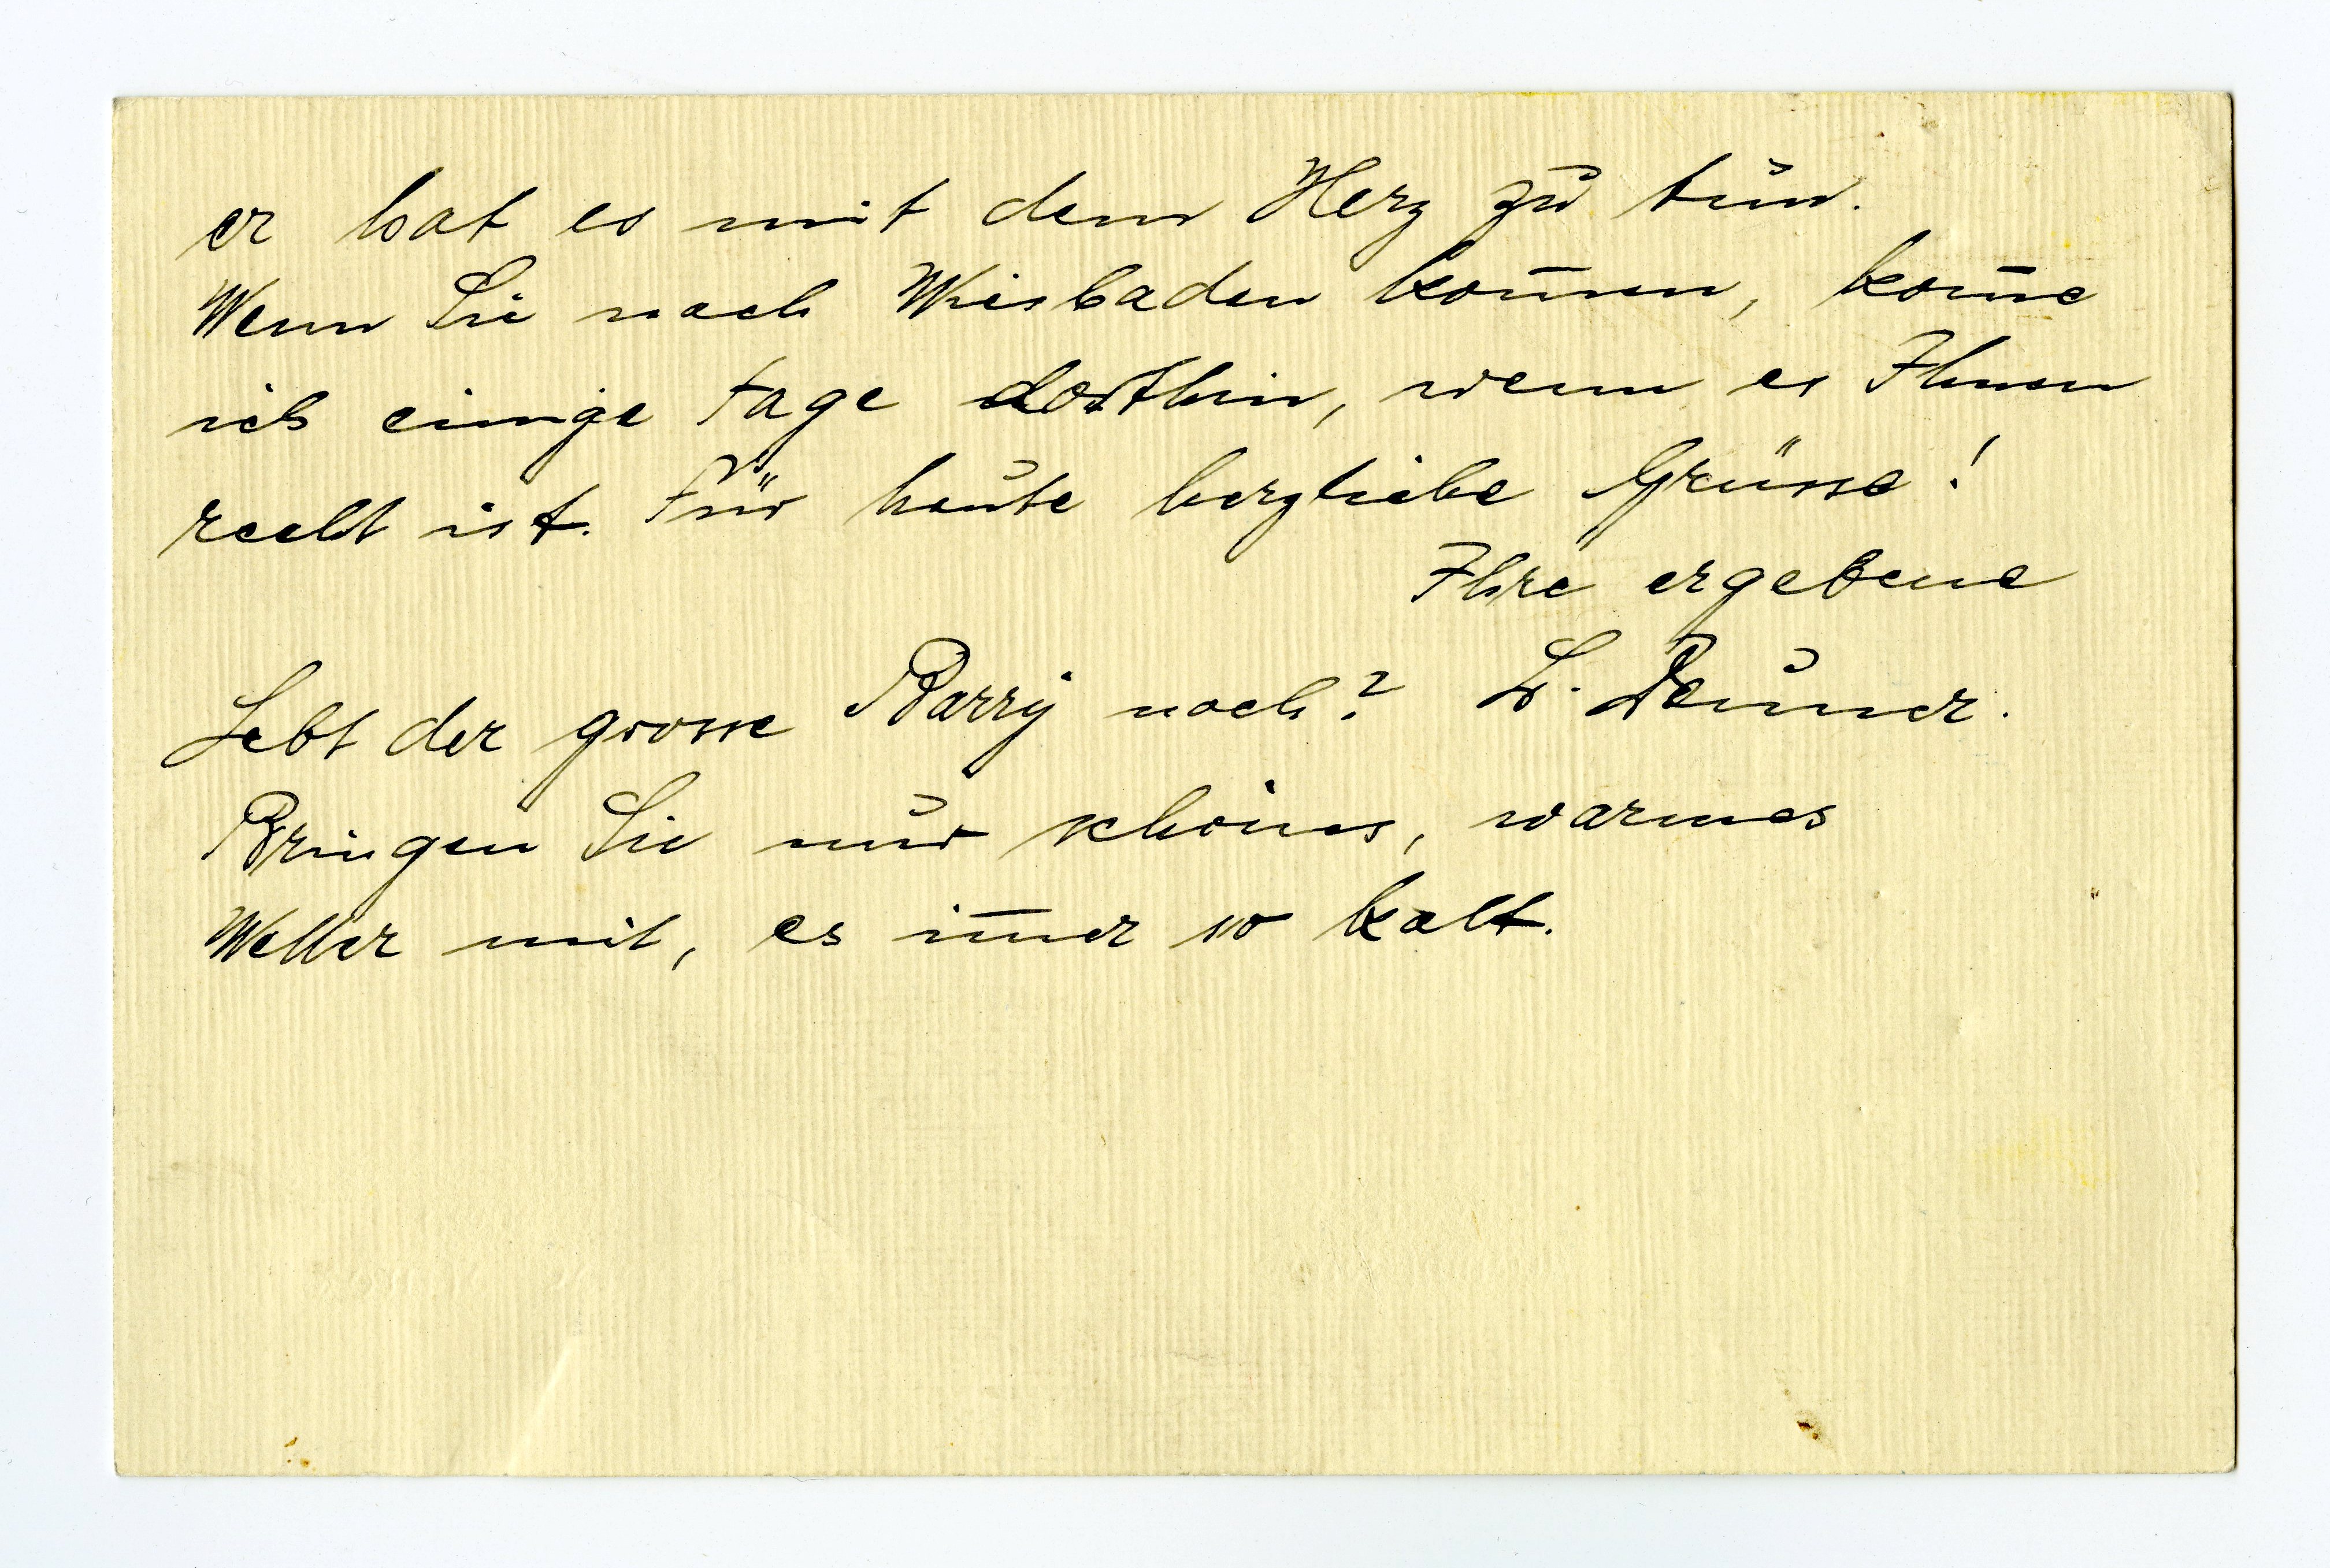 er hat es mit dem Herz zu tun.
Wenn Sie nach Wiesbaden kom̅en, kom̅e
ich einige Tage dorthin, wenn es Ihnen
recht ist. Für heute herzliche Grüsse!
Ihre ergebene
Lebt der grosse Barry noch? L.
Bringen Sie nur schönes, warmes
Wetter mit, es im̅er so kalt.